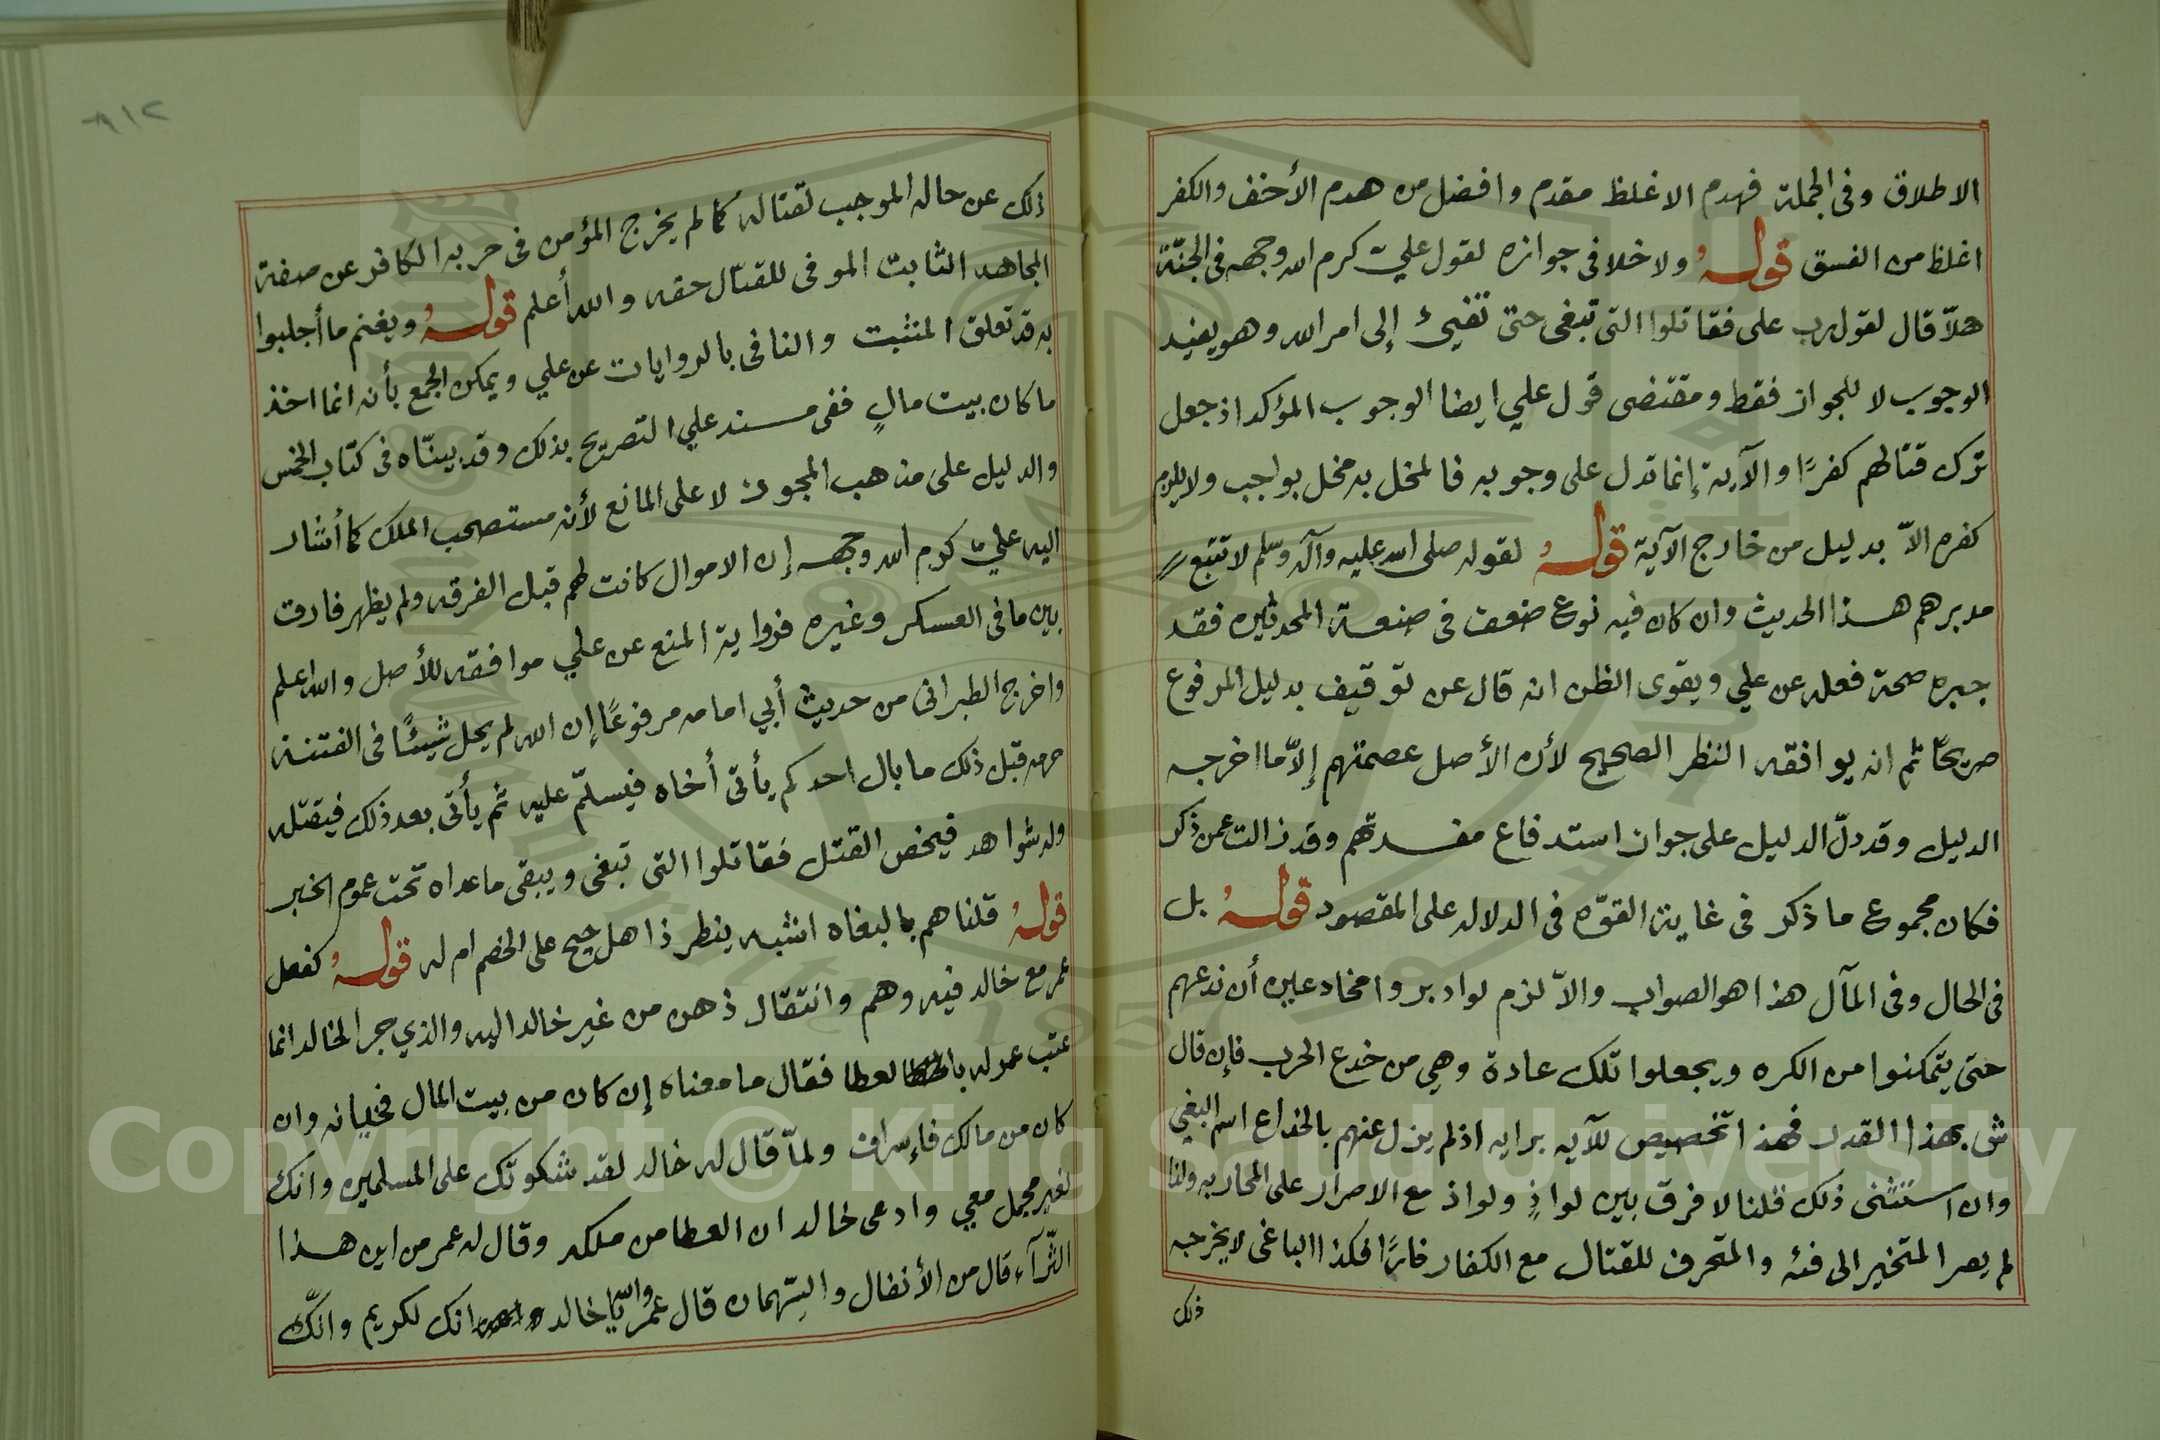 الاطلاق وفى الجملة فهدم الاغلظ مقدم وافضل من هدم الأخف والكفر
اغلظ من الفسق قوله ولا خلا فى جوازه لقول عليّ كرم الله وجهه فى الجنّة
هلّا قال لقول رب على فقاتلوا التى تبغى حتى تفيئ إلى امر الله وهو يفيد
الوجوب لا للجواز فقط ومقتضى قول علي ايضا الوجوب المؤكد اذ جعل
ترك قتالهم كفرًا والآية إنما تدل على وجوبه فالمخل به مخل بواجب ولا يلزم
كفره الاّ بدليل من خارج الآية قوله لقوله صلى الله عليه وآله وسلم لا تتبع
مدبرهم هذا الحديث وان كان فيه نوع ضعف فى صنعة المحدثين فقد
جبره صحة فعله عن علي ويقوى الظن انه قال عن توقيف بدليل المرفوع
صريحًا ثم انه يوافقه النظر الصحيح لأن الأصل عصمتهم إلاّ ما اخرجه
الدليل وقد دلّ الدليل على جواز استدفاع مفسدتهم وقد زالت عمن ذكر
فكان مجموع ما ذكر فى غاية القوّه فى الدلاله على المقصود قوله بل
فى الحال وفى المآل هذا هو الصواب والاّ لزم لو ادبروا مخادعين أن ندعهم
حتى يتمكنوا من الكره ويجعلوا تلك عادة وهي من خدع الحرب فإن قال
ش بهذا القدر فهذا تخصيص للآيه برايه اذ لم يزل عنهم بالخداع اسم البغي
وان استثنى ذلك قلنا لا فرق بين لواذٍ ولواذ مع الاصرار على المحاربه ولذا
لم يصر المتخير الى فئه والمتحرف للقتال مع الكفار فارًا فكذا الباغى لا يخرجه
ذلك
ذلك عن حاله الموجب لقتاله كما لم يخرج المؤمن فى حربه الكافر عن صفة
المجاهد الثابت الموفى للقتال حقه والله أعلم قوله ويغنم ما أجلبوا
به قد تعلق المثبت والنافى بالروايات عن علي ويمكن الجمع بأنه انما اخذ
ما كان بيت مالٍ ففى مسند علي التصريح بذلك وقد بينّاه فى كتاب الخمس
والدليل على مذهب المجوز لا على المانع لأنه مستصحب الملك كما أشار
اليه عليّ كرم الله وجهه إن الاموال كانت لهم قبل الفرقه ولم يظهر فارق
بين ما فى العسكر وغيره فرواية المنع عن علي موافقه للأصل والله اعلم
واخرج الطبرانى من حديث أبي امامه مرفوعًا إن الله لم يحل شيئًا فى الفتنة
حرمه قبل ذلك ما بال احدكم يأتى أخاه فيسلّم عليه ثم يأتى بعد ذلك فيقتله
وله شواهد فيخص القتل فقاتلوا التى تبغى ويبقى ما عداه تحت عموم الخبر
قوله قلنا هم بالبغاه اشبه ينظر ذا هل حج على الخصم ام له قوله كفعل
عمر مع خالد فيه وهم وانتقال ذهن من غير خالد اليه والذي جرا لخالد انما
عتب عمر له بالعطا فقال ما معناه إن كان من بيت المال فخيانه وان
كان من مالك فإسراف ولمّا قال له خالد لقد شكوتك على المسلمين وانك
لغير مجمل معي وادعى خالد ان العطا من ملكه وقال له عمر من اين هذا
الثّرآء قال من الأنفال والسّهمان قال عمر والله يا خالد انك لكريم وانّك